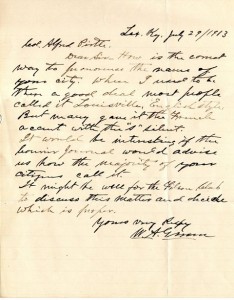 Lex. Ky. July 29/1913
Col. Alfred Pirtle.
Dear Sir: How is the correct
way to pronounce the name of
your city. When I used to be
there a good deal most people
called it Louisville, English style.
But many gave it the French
accent with the "s" silent.
It would be interesting if the
Courier Journal would advise
us how the majority of your
citizens call it.
It might be well for the Filson Club
to discuss this matter and decide
which is proper.
Yours very Resp
W. H.